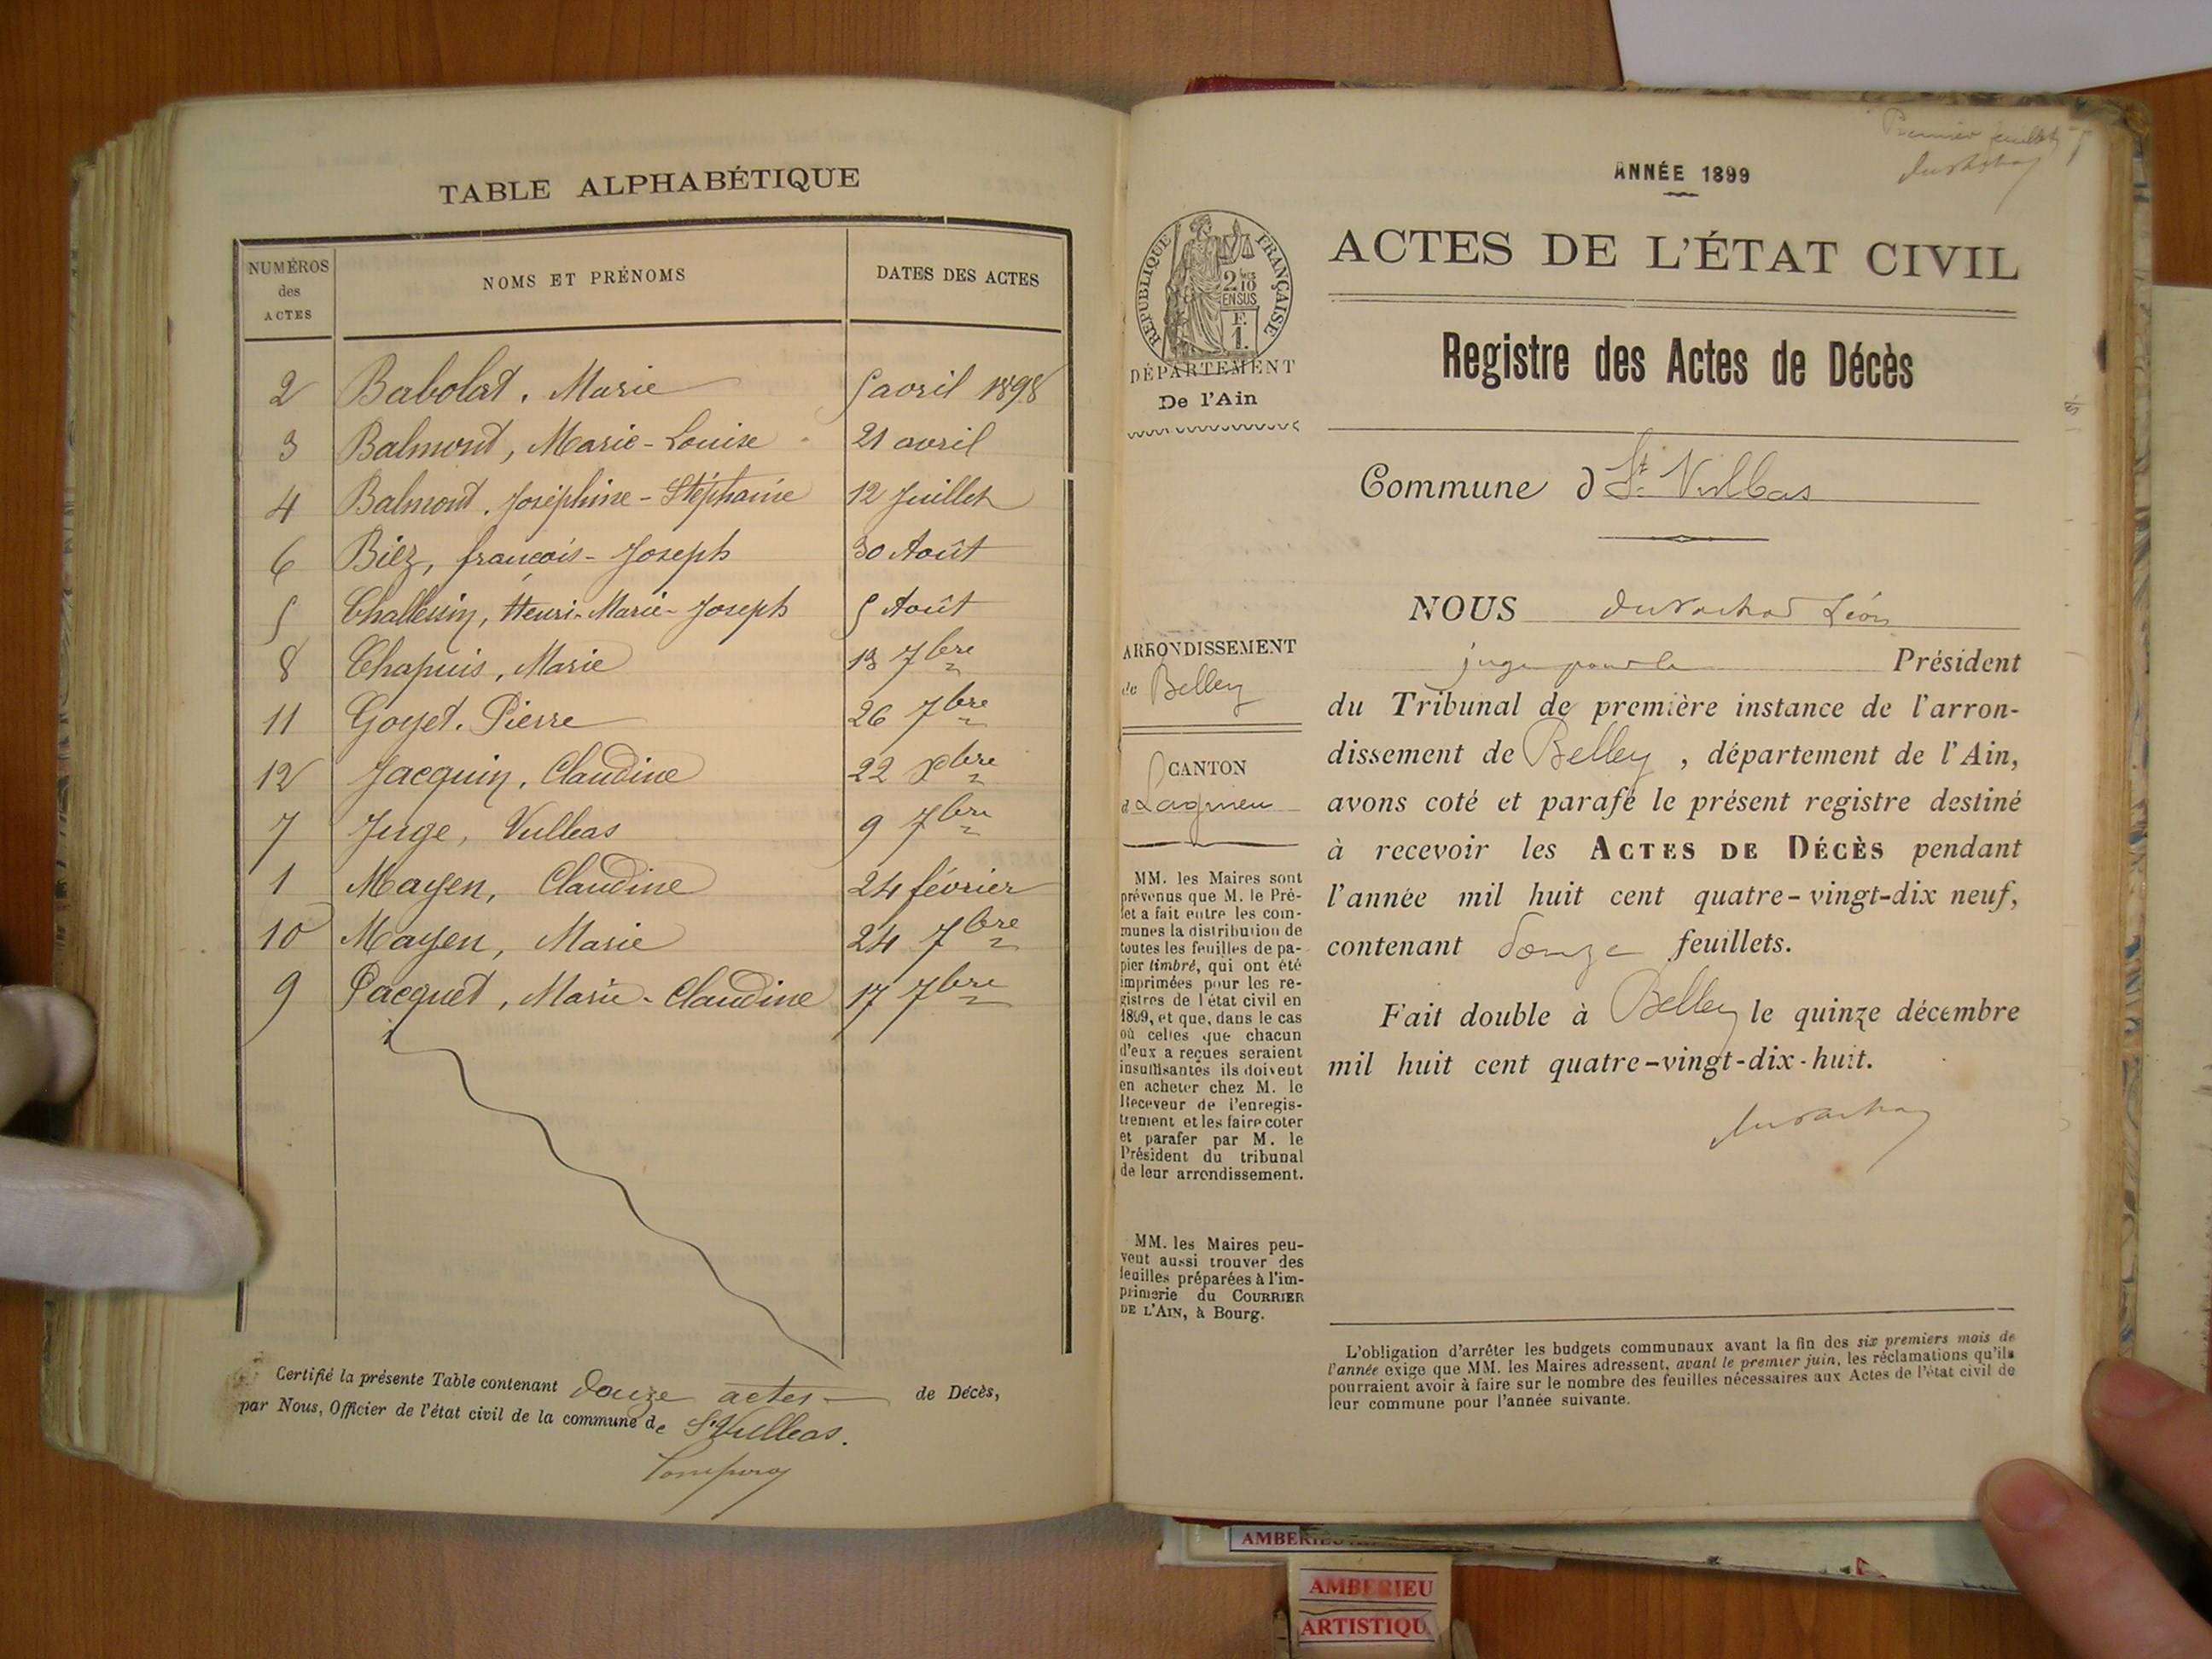 TABLE ALPHABÉTIQUE
NUMÉROS des ACTES NOMS ET PRÉNOMS DATES DES ACTES
2 Babolat, Marie 5 avril 1898
3 Balmont, Marie-Louise 21 avril
4 Balmont, Joséphine-Stéphanie 12 Juillet
6 Biez, françois-Joseph 30 Août
5 Henri-Marie-Joseph 5 Août
8 Chapuis, Marie 13 7bre
11 Goyet, Pierre 26 7bre
12 Jacquin, Claudine 22 Xbre
7 Juge, Vulbas 9 7bre
1 Mayen, Claudine 24 février
10 Mayen, Marie 24 7bre
9 Pacquet, Marie-Claudine 17 7bre
Certifié la présente Table contenant douze actes de Décès,
par Nous, Officier de l'état civil de la commune de St Vulbas.
Premier feuillet
ANNÉE 1899
RÉPUBLIQUE FRANÇAISE
2/10 EN SUS
F. 1.
DÉPARTEMENT
De l'Ain
ARRONDISSEMENT
de Belley
CANTON
d Lagnieu
MM. les Maires sont
prévenus que M. le Pré-
fet a fait entre les com-
munes la distribution de
toutes les feuilles de pa-
pier timbré, qui ont été
imprimées pour les re-
gistres de l'état civil en
1899, et que, dans le cas
où celles que chacun
d'eux a reçues seraient
insuffisantes ils doivent
en acheter chez M. le
Receveur de l'enregis-
trement et les faire coter
et parafer par M. le
Président du tribunal
de leur arrondissement.
MM. les Maires peu-
vent aussi trouver des
feuilles préparées à l'im-
primerie du COURRIER
DE L'AIN, à Bourg.
ACTES DE L'ÉTAT CIVIL
Registre des Actes de Décès
Commune d St Vulbas
NOUS Léon
juge pour le Président
du Tribunal de première instance de l'arron-
dissement de Belley, département de l'Ain,
avons coté et parafé le présent registre destiné
à recevoir les ACTES DE DÉCÈS pendant
l'année mil huit cent quatre-vingt-dix neuf,
contenant douze feuillets.
Fait double à Belley le quinze décembre
mil huit cent quatre-vingt-dix-huit.
L'obligation d'arrêter les budgets communaux avant la fin des six premiers mois de
l'année exige que MM. les Maires adressent, avant le premier juin, les réclamations qu'ils
pourraient avoir à faire sur le nombre des feuilles nécessaires aux Actes de l'état civil de
leur commune pour l'année suivante.
AMBERIEU
AMBERIEU
ARTISTIQU